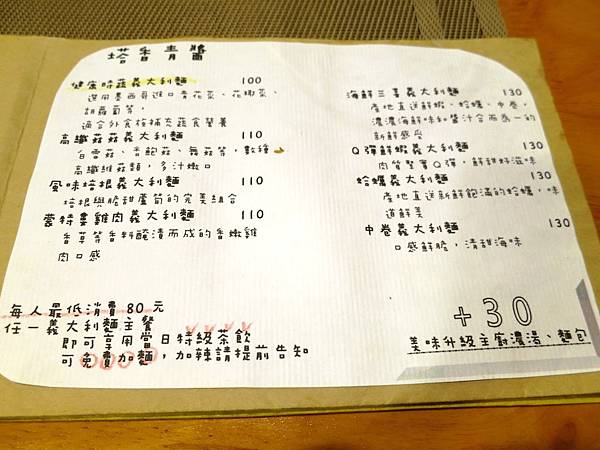 塔香青醬
健康時蔬義大利麵 100
選用墨西哥進口青花菜、花椰菜、
胡蘿蔔等，
適合外食族補充蔬食營養
高纖菇菇義大利麵 110
白雪菇、香鮑菇、舞菇等，數種
高纖維菇類，多汁嫩口
風味培根義大利麵 110
培根與脆甜蘆筍的完美組合
蒙特婁雞肉義大利麵 110
香草等香料醃漬而成的香嫩雞
肉口感
海鮮三享義大利麵 130
產地直送鮮蝦、蛤蠣、中卷，
濃濃海鮮味和醬汁合而為一的
新鮮感受
Q彈鮮蝦義大利麵 130
肉質緊實Q彈，鮮甜好滋味
蛤蠣義大利麵 130
產地直送新鮮飽滿的蛤蠣，味
道鮮美
中卷義大利麵 130
口感鮮脆，清甜海味
每人最低消費80元
任一義大利麵主餐
即可享用當日特級茶飲
可免費加麵，加辣請提前告知
+30
美味升級主廚濃湯、麵包